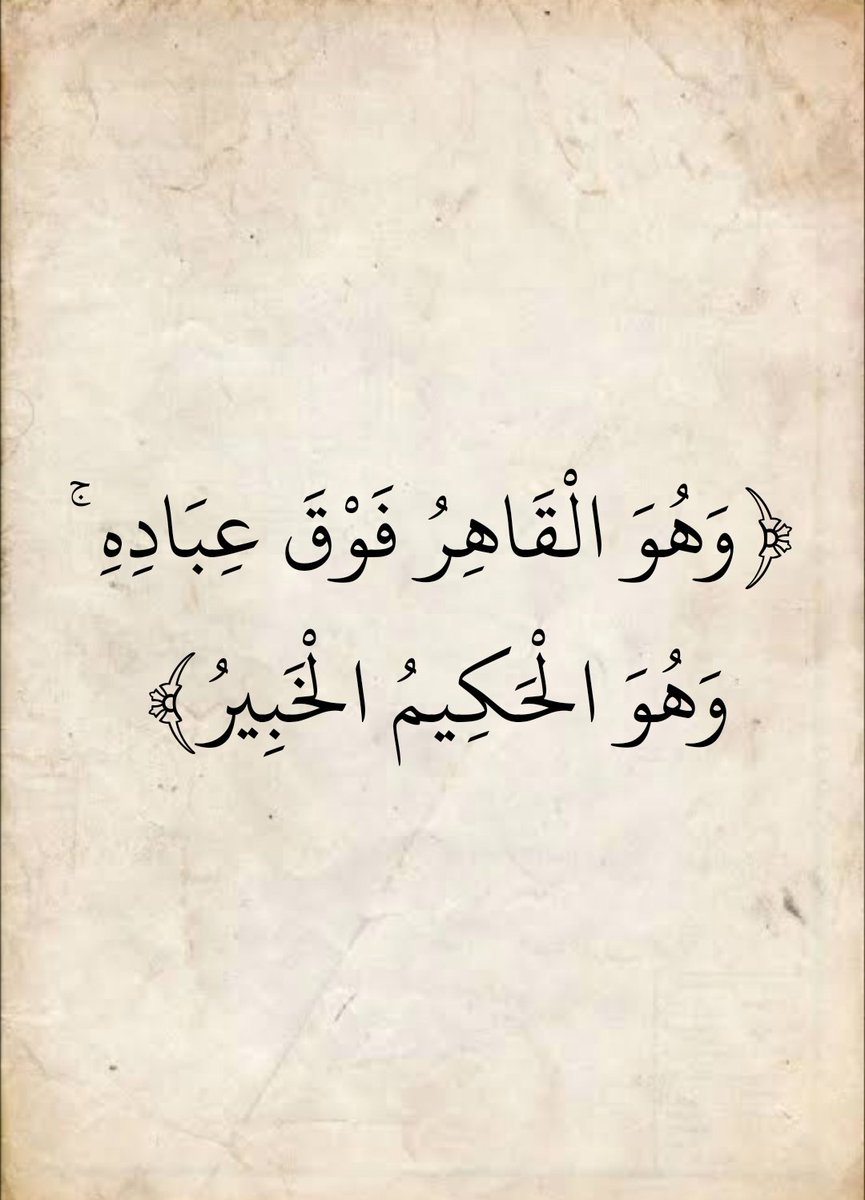 ﴿وَهُوَ الْقَاهِرُ فَوْقَ عِبَادِهِ ۚ
وَهُوَ الْحَكِيمُ الْخَبِيرُ﴾